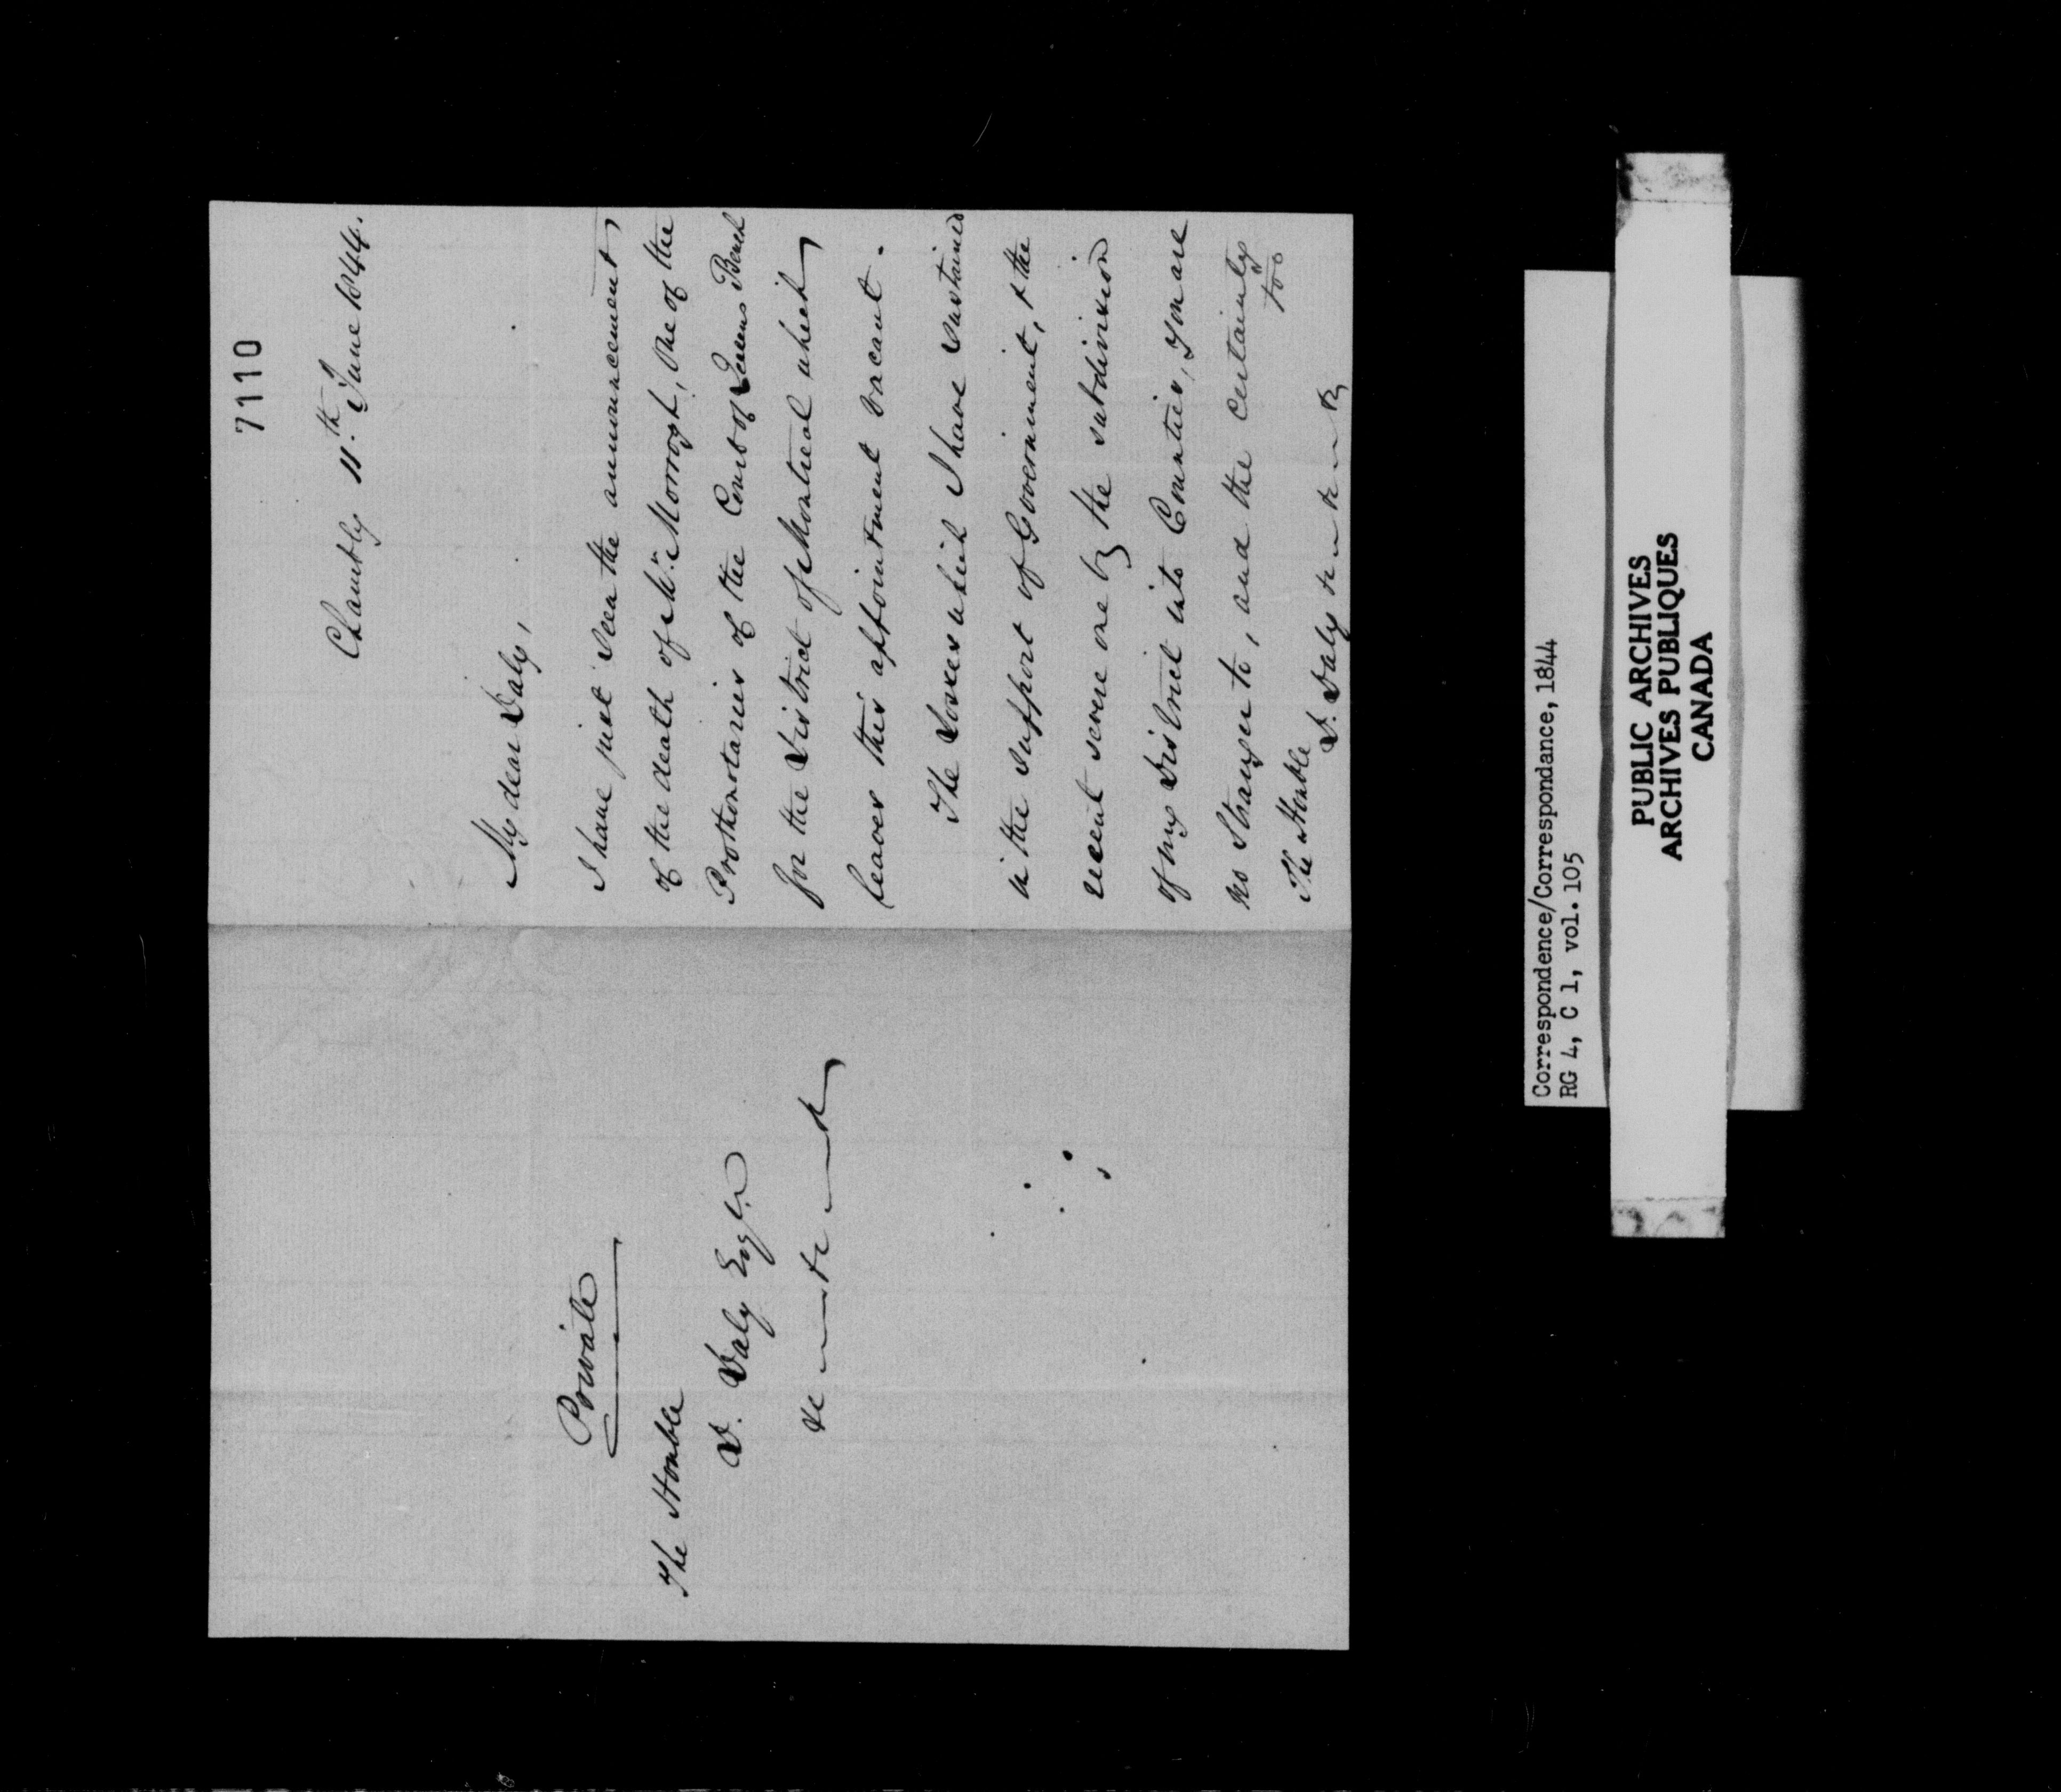 7110
Chambly 11th. June 1844.
My dear Daly,
I have just seen the announcement
of the death of Mr. Morrogh, one of the
Prothonotaries of the Court of Queens Bench
for the District of Montreal which
leaves this appointment vacant.
The Losses which I have sustained
in the support of Government, & the
recent severe one by the subdivision
of my District into Counties, you are
no Stranger to, and the certainly
too
The Honble
D. Daly
Private
The Honble
D. Daly Esqr.
Correspondence/Correspondance, 1844
RG 4, C 1, vol. 105
PUBLIC ARCHIVES
ARCHIVES PUBLIQUES
CANADA